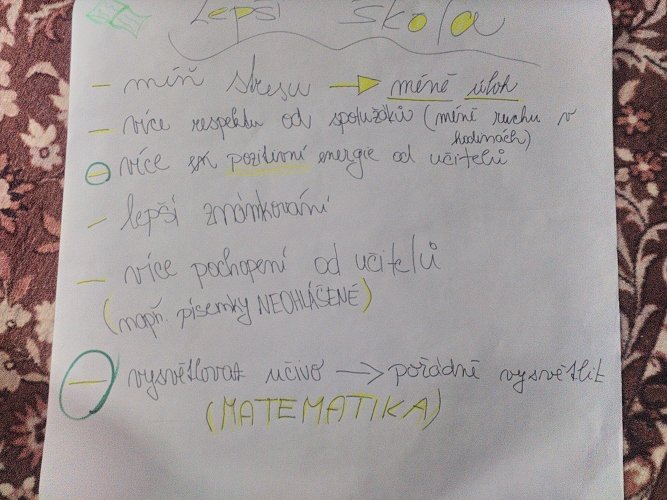 Lepší škola
– míň stresu → méně úloh
– více respektu od spolužáků (méně ruchu v hodinách)
– více pozitivní energie od učitelů
– lepší známkování
– více pochopení od učitelů
(např. písemky NEOHLÁŠENÉ)
– vysvětlovat učivo → pořádně vysvětlit
(MATEMATIKA)